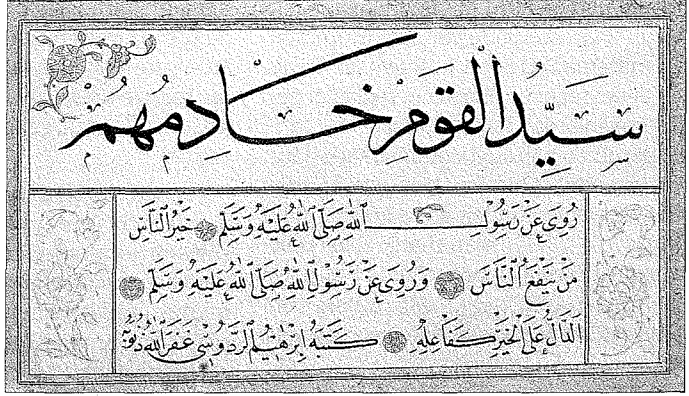 سَيِّدُ الْقَوْمِ خَادِمُهُمْ
رُوِىَ عَنْ رَسُولِ اللّٰهِ صَلَّى اللّٰهُ عَلَيْهِ وَسَلَّمَ خَيْرُ النَّاسِ
مَنْ يَنْفَعُ النَّاسَ وَرُوِىَ عَنْ رَسُولِ اللّٰهِ صَلَّى اللّٰهُ عَلَيْهِ وَسَلَّمَ
اَلدَّالُّ عَلَى الْخَيْرِ كَفَاعِلِهِ كَتَبَهُ اِبْرٰهِيمُ غَفَرَ اللّٰهُ ذُنُوبَهُ